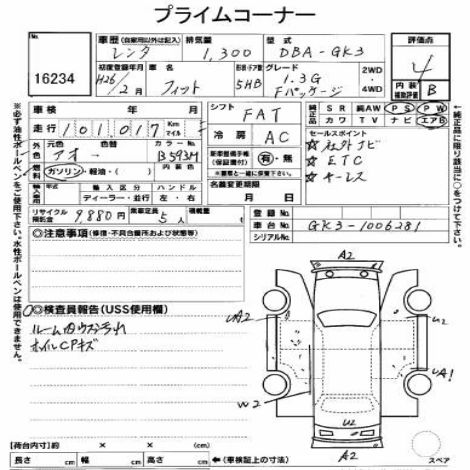 プライムコーナー
16234
車歴 (自家用以外は記入) 排気量 型式
レンタ 1,300 DBA-GK3
評価点
4
初度登録年月 車名 形状・ドア数 グレード
H26/2月 フィット 5HB 1.3G Fパッケージ
2WD・4WD
内装補助評価 B
車検 年 月
走行 101,017 Km マイル
シフト FAT
冷房 AC
純正品 SR 純AW PS PW
カワ TV ナビ エアB
外色 元色 色替 カラーNo.
アオー B593M
燃料 ガソリン・軽油・( ) 内装色
輸入車 輸入区分 ハンドル
ディーラー・並行 左・右
リサイクル預託金 9880円 乗車定員 5人 積載量
新車整備手帳(保証書付) 有・無
※記入無い場合は無しと致します。
名義変更期限
月 日
セールスポイント
☆社外ナビ
☆ETC
☆キーレス
登録No.
車台No. GK3-1006281
シリアルNo.
◎注意事項 (修復・不具合箇所および状態等)
◎検査員報告(USS使用欄)
ルーム内ウスヨゴレ
ホイルCPキズ
A2
UA2
U2
UA1
W2
U2
A2
スペア
[荷台内寸] × ×
長さ cm 幅 cm 高さ cm ←(車検証上の寸法)
※必ず油性ボールペンをご使用下さい。水性ボールペンは使用できません。